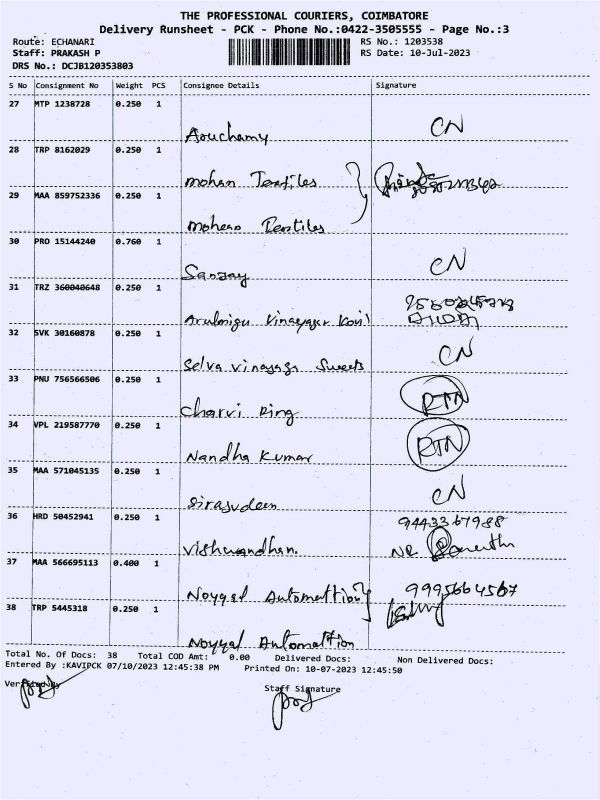 THE PROFESSIONAL COURIERS, COIMBATORE
Delivery Runsheet - PCK - Phone No.:0422-3505555 - Page No.:3
Route: ECHANARI RS No.: 1203538
Staff: PRAKASH P RS Date: 10-Jul-2023
DRS No.: DCJB120353803
S No Consignment No Weight PCS Consignee Details Signature
27 MTP 1238728 0.250 1
Aouchamy CN
28 TRP 8162029 0.250 1
Mohan Textiles
29 MAA 859752336 0.250 1
Mohan Textiles
30 PRO 15144240 0.760 1
Sanjay CN
31 TRZ 360040648 0.250 1
Arulmigu Vinayagar Kovil
32 SVK 30160878 0.250 1
Selva vinayaga Sweets CN
33 PNU 756566506 0.250 1
Charvi Ring RTN
34 VPL 219587770 0.250 1
Nandha Kumar RTN
35 MAA 571045135 0.250 1
Sirajudeen CN
36 HRD 50452941 0.250 1 9443367988
Vishwandhan.
37 MAA 566695113 0.400 1
Noyyal Automattion 9995664567
38 TRP 5445318 0.250 1
Noyyal Automattion
Total No. Of Docs: 38 Total COD Amt: 0.00 Delivered Docs: Non Delivered Docs:
Entered By :KAVIPCK 07/10/2023 12:45:38 PM Printed On: 10-07-2023 12:45:50
Verified By
Staff Signature